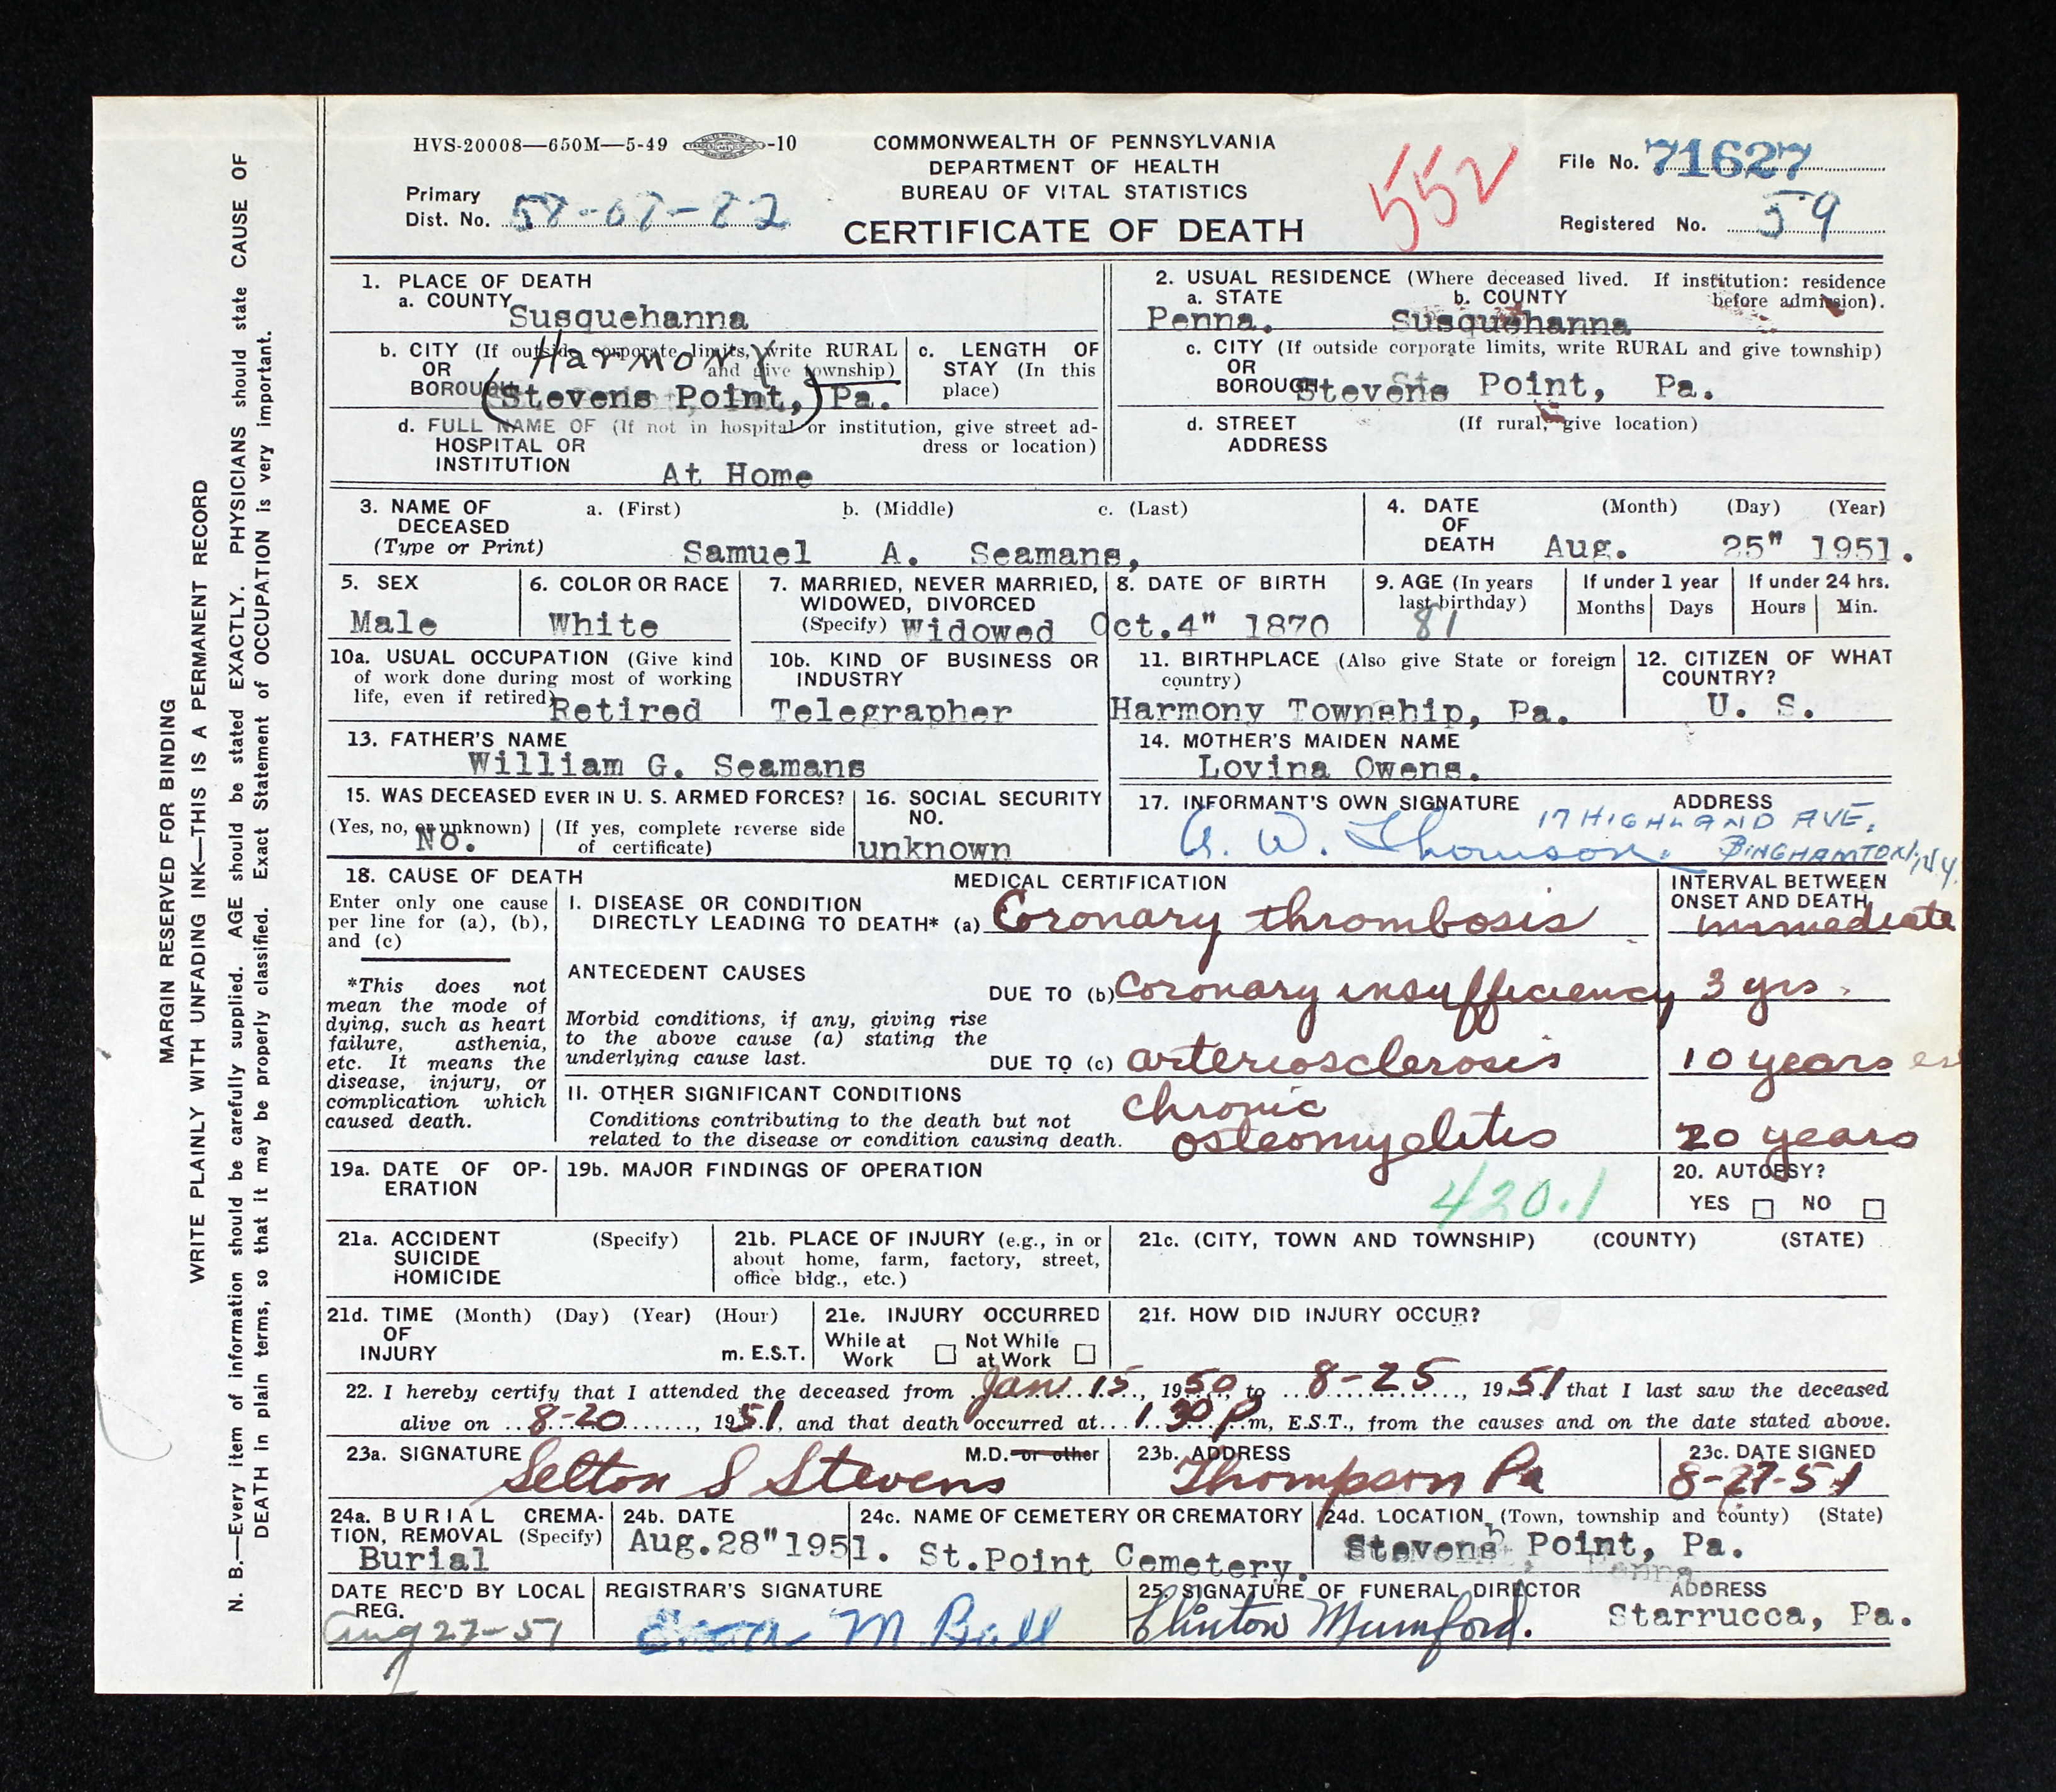 HVS-20008—650M—5-49 -10
COMMONWEALTH OF PENNSYLVANIA
DEPARTMENT OF HEALTH
BUREAU OF VITAL STATISTICS
CERTIFICATE OF DEATH
552
File No. 71627
Registered No. 59
Primary
Dist. No.
1. PLACE OF DEATH
a. COUNTY Susquehanna
b. CITY (If outside corporate limits, write RURAL
OR and give township)
BOROUGH
Harmony
(Stevens Point,) Pa.
c. LENGTH OF
STAY (In this
place)
d. FULL NAME OF (If not in hospital or institution, give street ad-
HOSPITAL OR dress or location)
INSTITUTION At Home
2. USUAL RESIDENCE (Where deceased lived. If institution: residence
a. STATE b. COUNTY before admission).
Penna. Susquehanna
c. CITY (If outside corporate limits, write RURAL and give township)
OR
BOROUGH Stevens Point, Pa.
d. STREET (If rural, give location)
ADDRESS
3. NAME OF a. (First) b. (Middle) c. (Last)
DECEASED
(Type or Print) Samuel A. Seamans,
4. DATE (Month) (Day) (Year)
OF
DEATH Aug. 25" 1951.
5. SEX
Male
6. COLOR OR RACE
White
7. MARRIED, NEVER MARRIED,
WIDOWED, DIVORCED
(Specify) Widowed
8. DATE OF BIRTH
Oct.4" 1870
9. AGE (In years
last birthday)
81
If under 1 year
Months Days
If under 24 hrs.
Hours Min.
10a. USUAL OCCUPATION (Give kind
of work done during most of working
life, even if retired) Retired
10b. KIND OF BUSINESS OR
INDUSTRY
Telegrapher
11. BIRTHPLACE (Also give State or foreign
country)
Harmony Township, Pa.
12. CITIZEN OF WHAT
COUNTRY?
U. S.
13. FATHER'S NAME
William G. Seamans
14. MOTHER'S MAIDEN NAME
Lovina Owens.
15. WAS DECEASED EVER IN U. S. ARMED FORCES?
(Yes, no, or unknown) (If yes, complete reverse side
of certificate)
No.
16. SOCIAL SECURITY
NO.
unknown
17. INFORMANT'S OWN SIGNATURE ADDRESS
W. Thomson. 17 HIGHLAND AVE,
BINGHAMTON, N.Y.
18. CAUSE OF DEATH
Enter only one cause
per line for (a), (b),
and (c)
*This does not
mean the mode of
dying, such as heart
failure, asthenia,
etc. It means the
disease, injury, or
complication which
caused death.
MEDICAL CERTIFICATION
I. DISEASE OR CONDITION
DIRECTLY LEADING TO DEATH* (a) Coronary thrombosis
ANTECEDENT CAUSES
DUE TO (b) Coronary insufficiency
Morbid conditions, if any, giving rise
to the above cause (a) stating the
underlying cause last.
DUE TO (c) arteriosclerosis
II. OTHER SIGNIFICANT CONDITIONS
Conditions contributing to the death but not
related to the disease or condition causing death.
chronic
osteomyelitis
INTERVAL BETWEEN
ONSET AND DEATH
immediate
3 yrs.
10 years
20 years
19a. DATE OF OP-
ERATION
19b. MAJOR FINDINGS OF OPERATION
420.1
20. AUTOPSY?
YES NO
21a. ACCIDENT (Specify)
SUICIDE
HOMICIDE
21b. PLACE OF INJURY (e.g., in or
about home, farm, factory, street,
office bldg., etc.)
21c. (CITY, TOWN AND TOWNSHIP) (COUNTY) (STATE)
21d. TIME (Month) (Day) (Year) (Hour)
OF
INJURY m. E.S.T.
21e. INJURY OCCURRED
While at Not While
Work at Work
21f. HOW DID INJURY OCCUR?
22. I hereby certify that I attended the deceased from Jan 15, 1950, to 8-25, 1951 that I last saw the deceased
alive on 8-20, 1951, and that death occurred at 1 30 Pm, E.S.T., from the causes and on the date stated above.
23a. SIGNATURE M.D. or other
Selton S Stevens
23b. ADDRESS
Thompson Pa
23c. DATE SIGNED
8-27-51
24a. BURIAL CREMA-
TION, REMOVAL (Specify)
Burial
24b. DATE
Aug.28"1951.
24c. NAME OF CEMETERY OR CREMATORY
St.Point Cemetery.
24d. LOCATION (Town, township and county) (State)
Stevens Point, Pa.
DATE REC'D BY LOCAL
REG.
Aug 27-51
REGISTRAR'S SIGNATURE
M Ball
25. SIGNATURE OF FUNERAL DIRECTOR ADDRESS
Clinton Mumford. Starrucca, Pa.
MARGIN RESERVED FOR BINDING
WRITE PLAINLY WITH UNFADING INK—THIS IS A PERMANENT RECORD
N. B.—Every item of information should be carefully supplied. AGE should be stated EXACTLY. PHYSICIANS should state CAUSE OF
DEATH in plain terms, so that it may be properly classified. Exact Statement of OCCUPATION is very important.